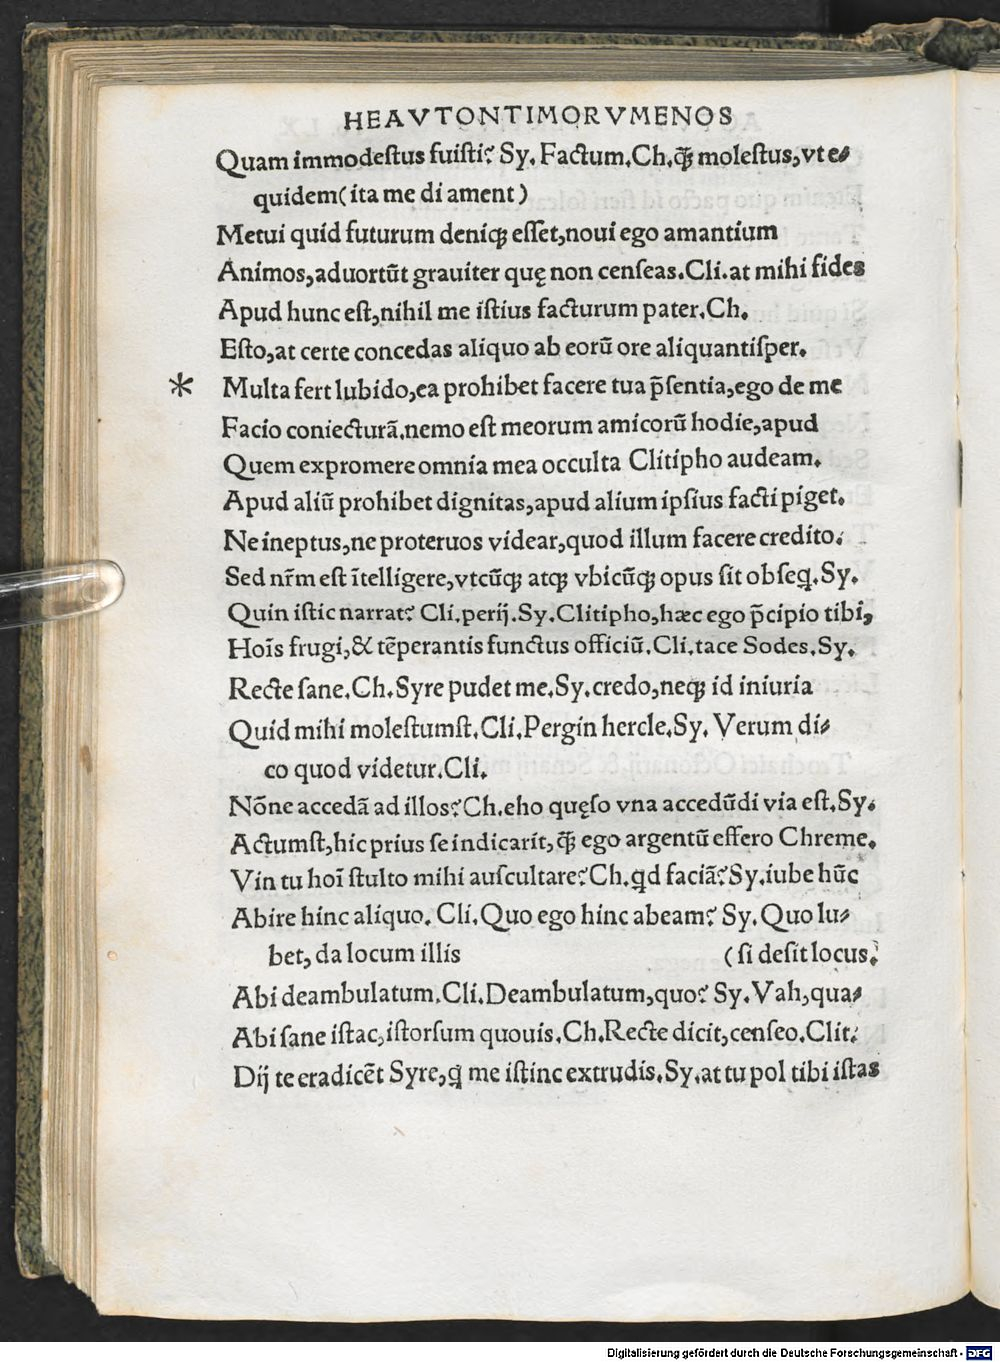 HEAVTONTIMORVMENOS
Quam immodeſtus fuiſti? Sy. Factum. Ch. q̃ moleſtus, vt e-
quidem (ita me di ament)
Metui quid futurum deniqꝫ eſſet, noui ego amantium
Animos, aduortũt grauiter quę non cenſeas. Cli. at mihi fides
Apud hunc eſt, nihil me iſtius facturum pater. Ch.
Eſto, at certe concedas aliquo ab eorũ ore aliquantiſper.
* Multa fert lubido, ea prohibet facere tua p̃ſentia, ego de me
Facio coniecturã. nemo eſt meorum amicorũ hodie, apud
Quem expromere omnia mea occulta Clitipho audeam.
Apud aliũ prohibet dignitas, apud alium ipſius facti piget.
Ne ineptus, ne proteruos videar, quod illum facere credito.
Sed nr̃m eſt ĩtelligere, vtcũqꝫ atqꝫ vbicũqꝫ opus ſit obſeq. Sy.
Quin iſtic narrat? Cli. perij. Sy. Clitipho, hæc ego p̃cipio tibi,
Hoĩs frugi, & tẽperantis functus officiũ. Cli. tace Sodes. Sy.
Recte ſane. Ch. Syre pudet me. Sy. credo, neqꝫ id iniuria
Quid mihi moleſtumſt. Cli. Pergin hercle. Sy. Verum di-
co quod videtur. Cli.
Nõne accedã ad illos? Ch. eho quęſo vna accedũdi via eſt. Sy.
Actumſt, hic prius ſe indicarit, q̃ ego argentũ effero Chreme.
Vin tu hoĩ ſtulto mihi auſcultare? Ch. qd faciã? Sy. iube hũc
Abire hinc aliquo. Cli. Quo ego hinc abeam? Sy. Quo lu-
bet, da locum illis (ſi deſit locus.
Abi deambulatum. Cli. Deambulatum, quo? Sy. Vah, qua-
Abi ſane iſtac, iſtorſum quouis. Ch. Recte dicit, cenſeo. Clit.
Dij te eradicẽt Syre, q me iſtinc extrudis. Sy. at tu pol tibi iſtas
Digitalisierung gefördert durch die Deutsche Forschungsgemeinschaft - DFG